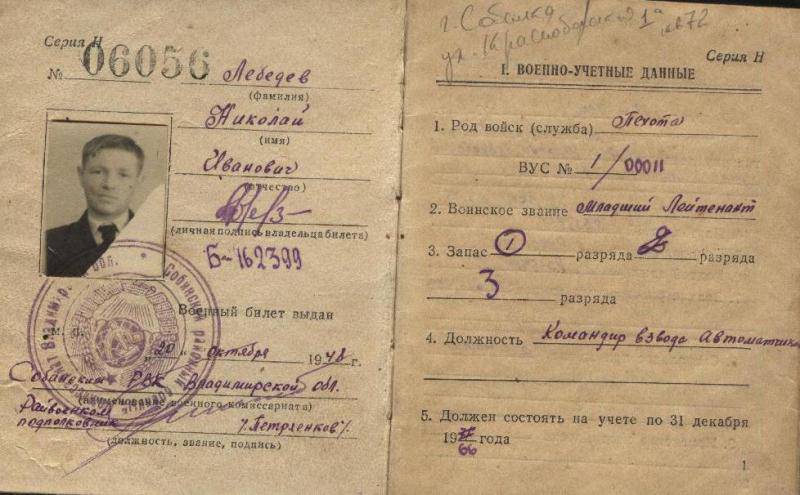 Серия Н
№ 06056
Лебедев
(фамилия)
Николай
(имя)
Иванович
(отчество)
(личная подпись владельца билета)
Б-162399
Военный билет выдан
М. П.
"20" октября 1948 г.
Собинским РВК Владимирской обл.
(наименование военного комиссариата)
Райвоенком
подполковник /Петрченков/
(должность, звание, подпись)
г. Собинка
ул. Красноборская 1а кв 72
Серия Н
I. ВОЕННО-УЧЕТНЫЕ ДАННЫЕ
1. Род войск (служба) Пехота
ВУС № 1/00011
2. Воинское звание Младший Лейтенант
3. Запас 1 разряда 2 разряда
3 разряда
4. Должность Командир взвода Автоматчик
5. Должен состоять на учете по 31 декабря
19 66 года
1